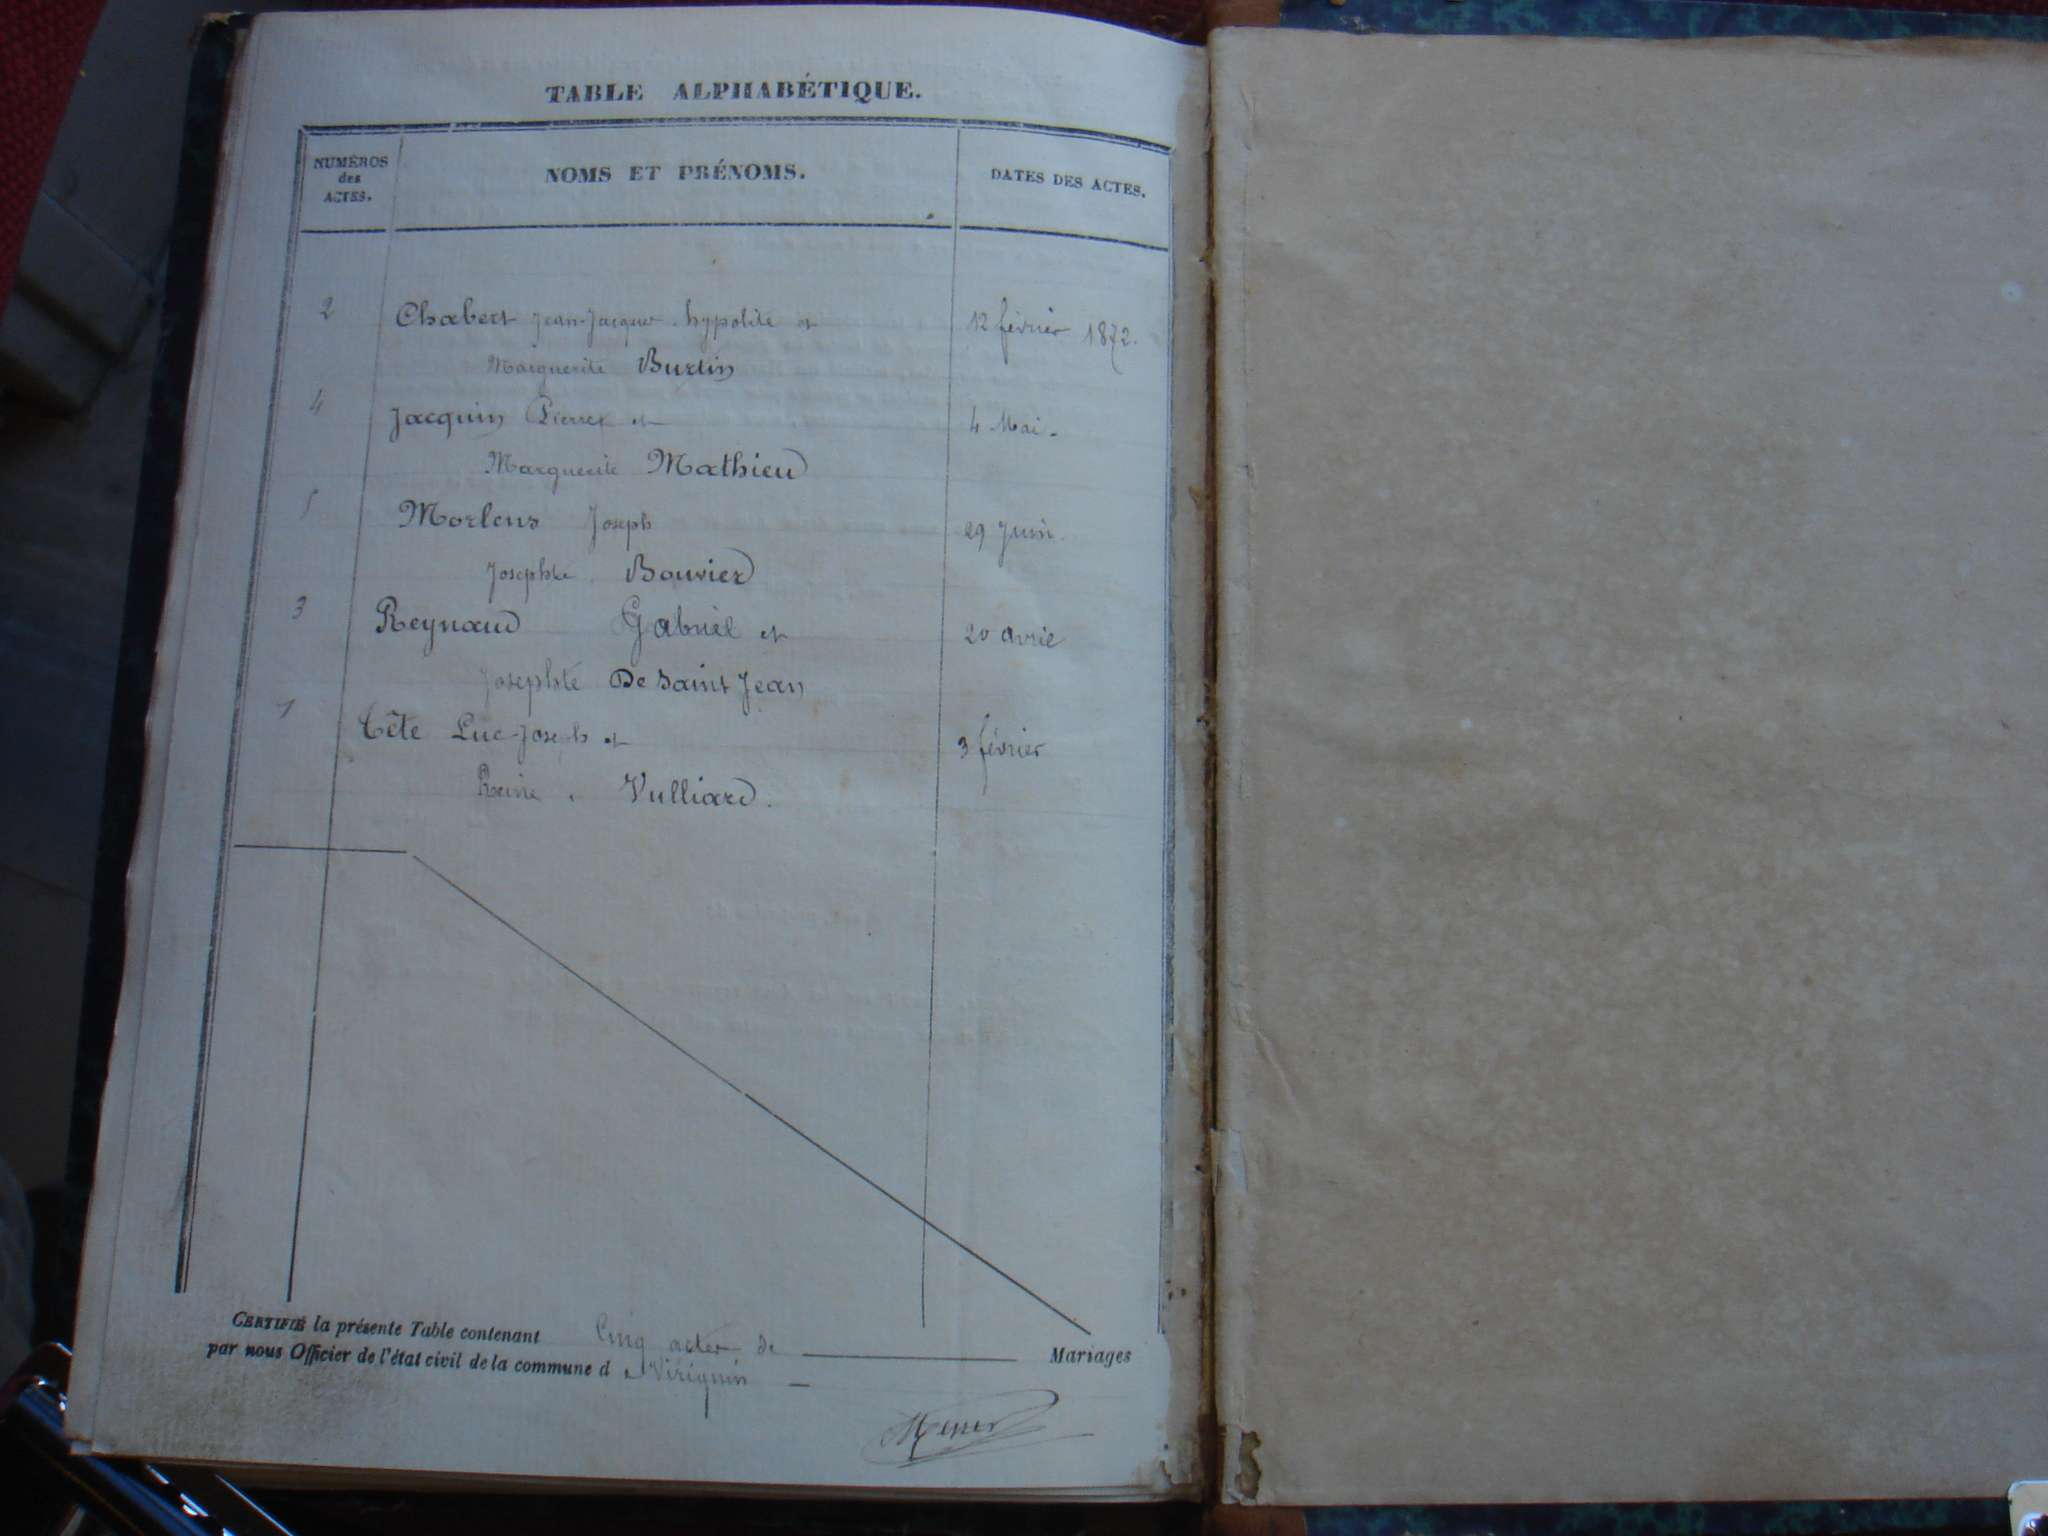 TABLE ALPHABÉTIQUE.
NUMÉROS
des
ACTES.
NOMS ET PRÉNOMS.
DATES DES ACTES.
2 Chabert Jean-Jacques hypolite et 12 février 1872.
Marguerite Burtin
4 Jacquin Pierre et 4 Mai.
Marguerite Mathieu
5 Morlens Joseph 29 Juin.
Josephte Bouvier
3 Reynaud Gabriel et 20 avril
Josephte De Saint Jean
1 Tête Luc-Joseph et 3 février
Reine Vulliard.
CERTIFIÉ la présente Table contenant Cinq actes de Mariages
par nous Officier de l'état civil de la commune de Virignin